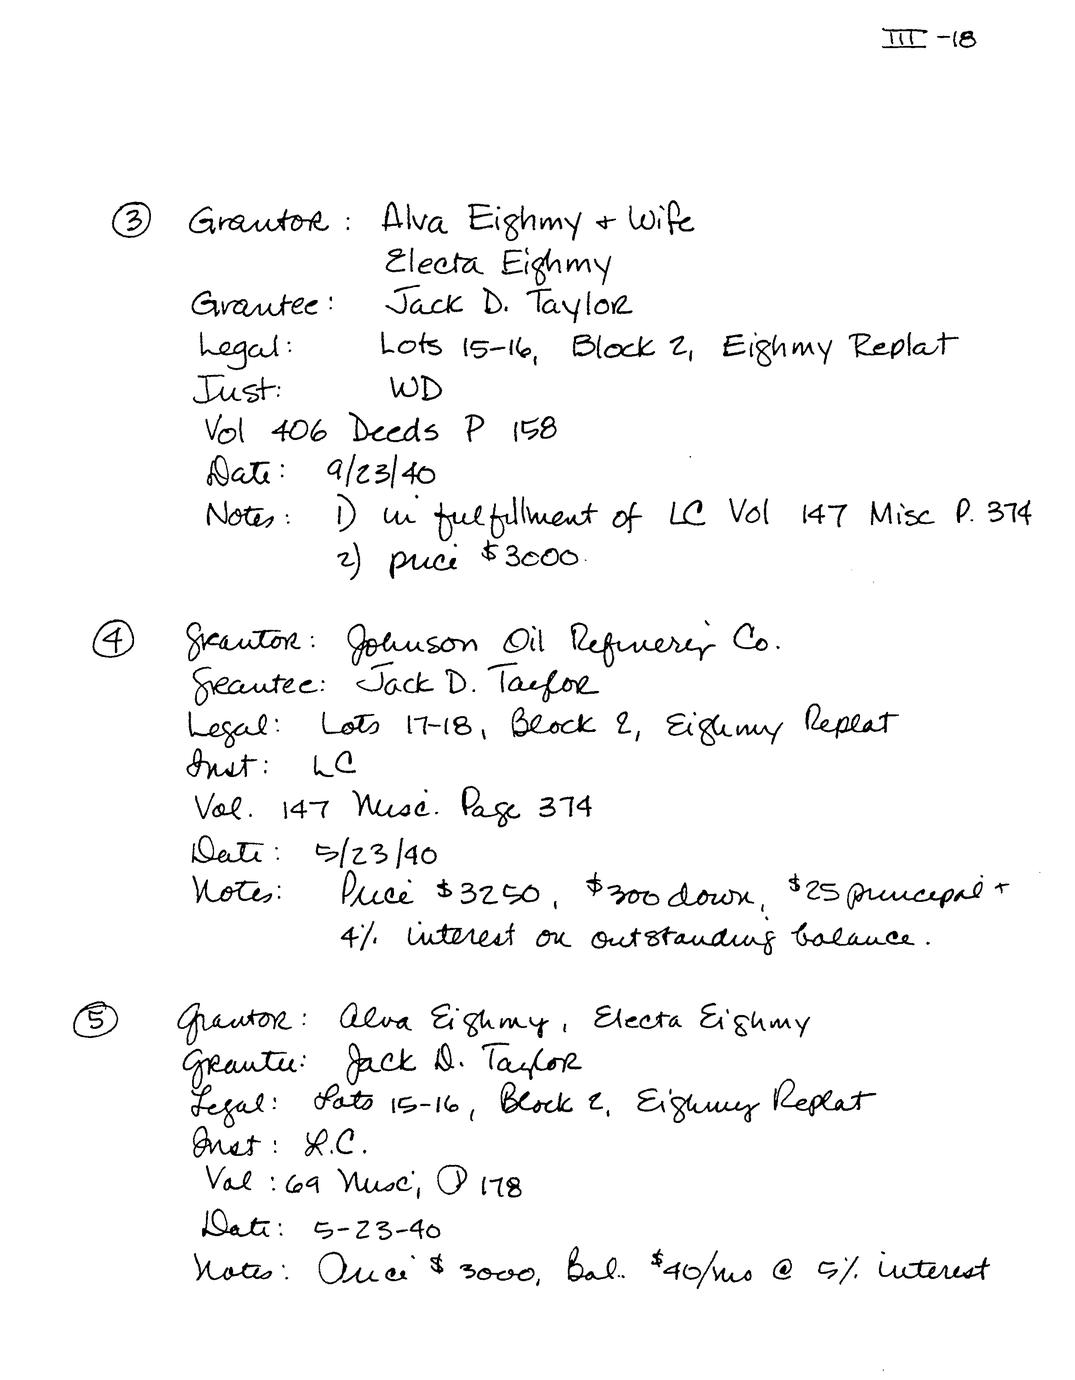 III -18
③ Grantor: Alva Eighmy + Wife
Electa Eighmy
Grantee: Jack D. Taylor
Legal: Lots 15-16, Block 2, Eighmy Replat
Inst: WD
Vol 406 Deeds P 158
Date: 9/23/40
Notes: 1) in fulfillment of LC Vol 147 Misc P. 374
2) price $3000.
④ Grantor: Johnson Oil Refinery Co.
Grantee: Jack D. Taylor
Legal: Lots 17-18, Block 2, Eighmy Replat
Inst: LC
Vol. 147 Misc. Page 374
Date: 5/23/40
Notes: Price $3250, $300 down, $25 principal +
4% interest on outstanding balance.
⑤ Grantor: Alva Eighmy, Electa Eighmy
Grantee: Jack D. Taylor
Legal: Lots 15-16, Block 2, Eighmy Replat
Inst: L.C.
Vol: 69 Misc, P 178
Date: 5-23-40
Notes: Price $3000, Bal. $40/mo @ 5% interest